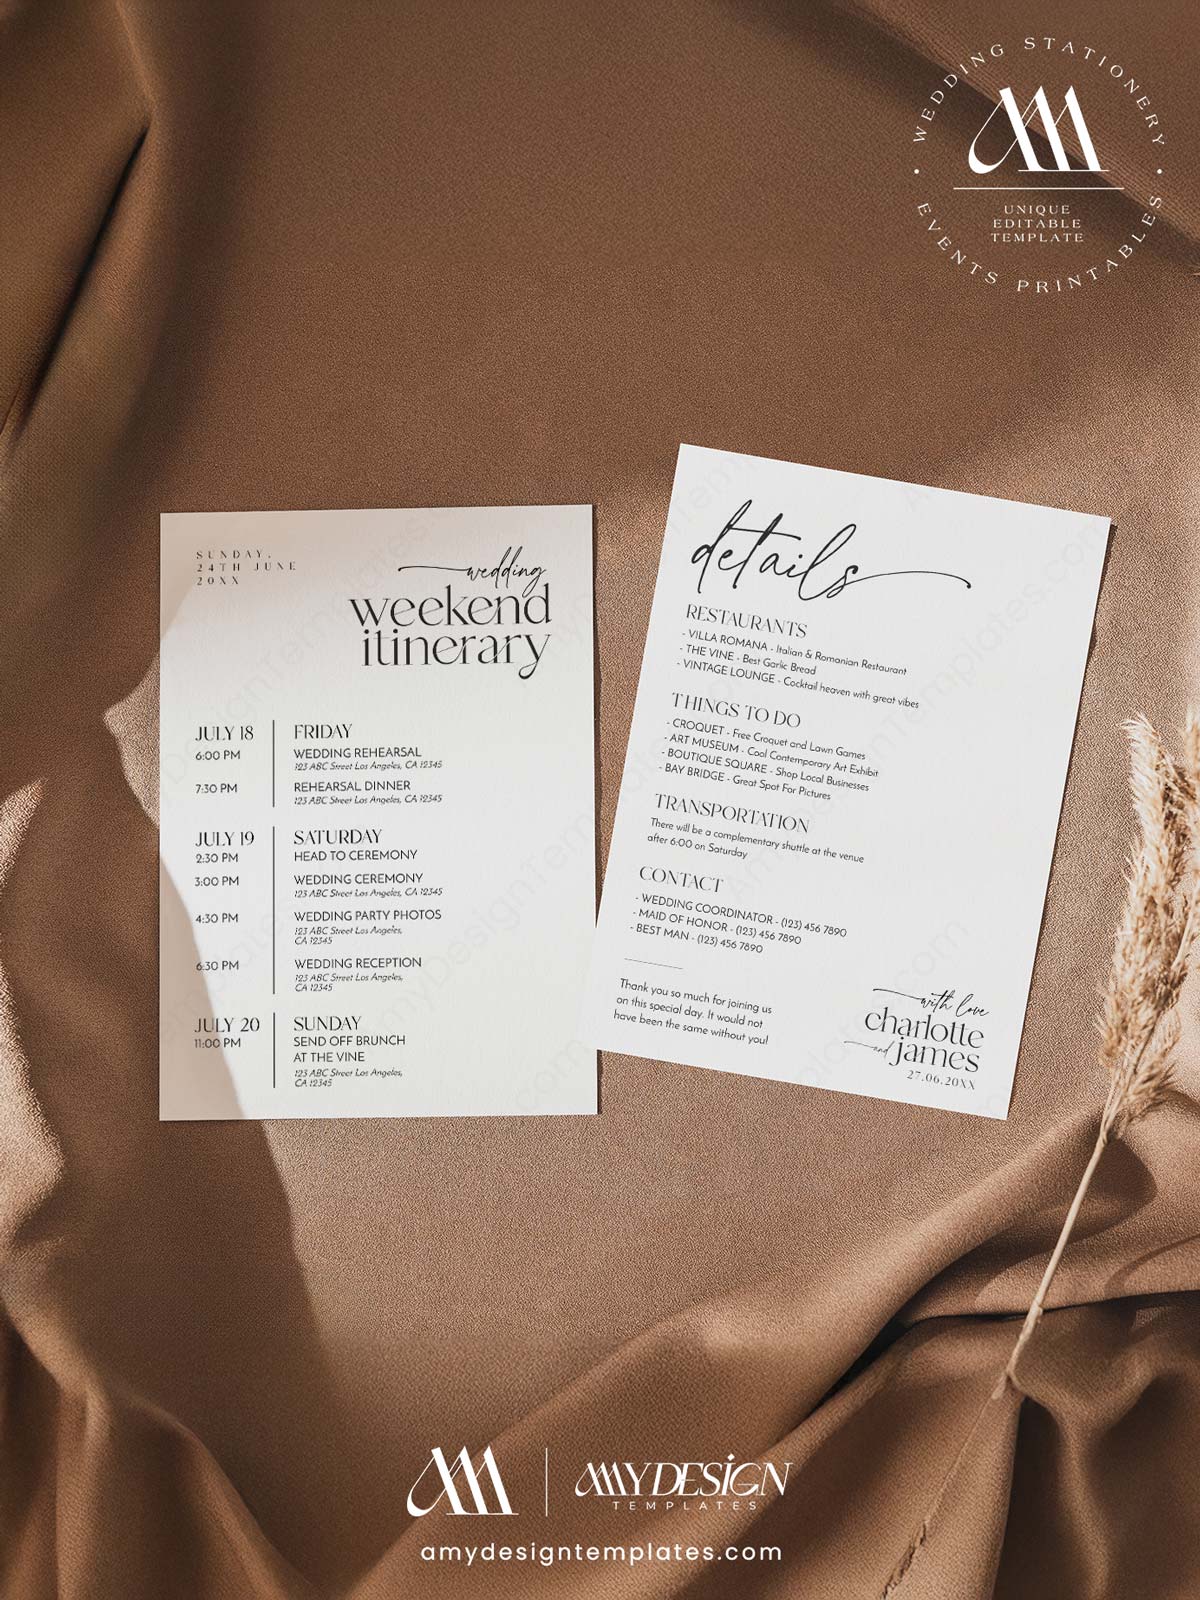 WEDDING STATIONERY
AM
UNIQUE
EDITABLE
TEMPLATE
EVENTS PRINTABLES
SUNDAY,
24TH JUNE
20XX
wedding
weekend
itinerary
JULY 18 FRIDAY
6:00 PM WEDDING REHEARSAL
123 ABC Street Los Angeles, CA 12345
7:30 PM REHEARSAL DINNER
123 ABC Street Los Angeles, CA 12345
JULY 19 SATURDAY
2:30 PM HEAD TO CEREMONY
3:00 PM WEDDING CEREMONY
123 ABC Street Los Angeles, CA 12345
4:30 PM WEDDING PARTY PHOTOS
123 ABC Street Los Angeles,
CA 12345
6:30 PM WEDDING RECEPTION
123 ABC Street Los Angeles,
CA 12345
JULY 20 SUNDAY
11:00 PM SEND OFF BRUNCH
AT THE VINE
123 ABC Street Los Angeles,
CA 12345
details
RESTAURANTS
- VILLA ROMANA - Italian & Romanian Restaurant
- THE VINE - Best Garlic Bread
- VINTAGE LOUNGE - Cocktail heaven with great vibes
THINGS TO DO
- CROQUET - Free Croquet and Lawn Games
- ART MUSEUM - Cool Contemporary Art Exhibit
- BOUTIQUE SQUARE - Shop Local Businesses
- BAY BRIDGE - Great Spot For Pictures
TRANSPORTATION
There will be a complementary shuttle at the venue
after 6:00 on Saturday
CONTACT
- WEDDING COORDINATOR - (123) 456 7890
- MAID OF HONOR - (123) 456 7890
- BEST MAN - (123) 456 7890
Thank you so much for joining us
on this special day. It would not
have been the same without you!
with love
charlotte
and james
27.06.20XX
AM
AMY DESIGN
TEMPLATES
amydesigntemplates.com